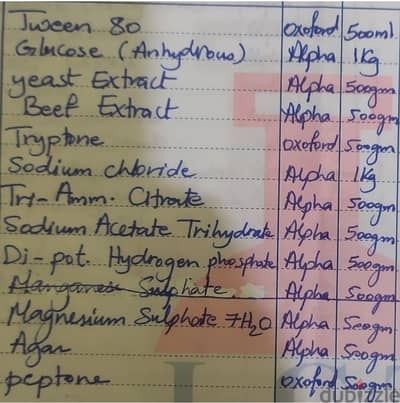 Tween 80 Oxoford 500ml
Glucose (Anhydrous) Alpha 1Kg
yeast Extract Alpha 500gm
Beef Extract Alpha 500gm
Tryptone Oxoford 500gm
Sodium chloride Alpha 1Kg
Tri-Amm. Citrate Alpha 500gm
Sodium Acetate Trihydrate Alpha 500gm
Di-pot. Hydrogen phosphate Alpha 500gm
Sulphate. Alpha 500gm
Magnesium Sulphate 7H2O Alpha 500gm
Agar Alpha 500gm
peptone Oxoford 500gm
dubizzle